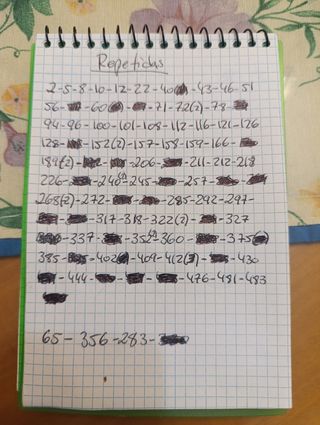 Repetidas
2-5-8-10-12-22-40-43-46-51
56-60-71-72(2)-78-
94-96-100-101-108-112-116-121-126
128-152(2)-157-158-159-166-
184(2)-206-211-212-218
226-240-245-257-
268(2)-272-285-292-297-
317-318-322(2)-327
337-352-360-375
385-402-409-412(3)-430
444-476-481-483
65-356-283-